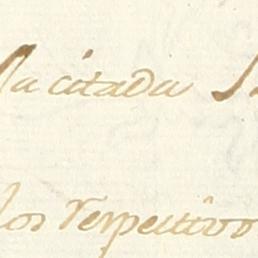 la citada
los respectivo